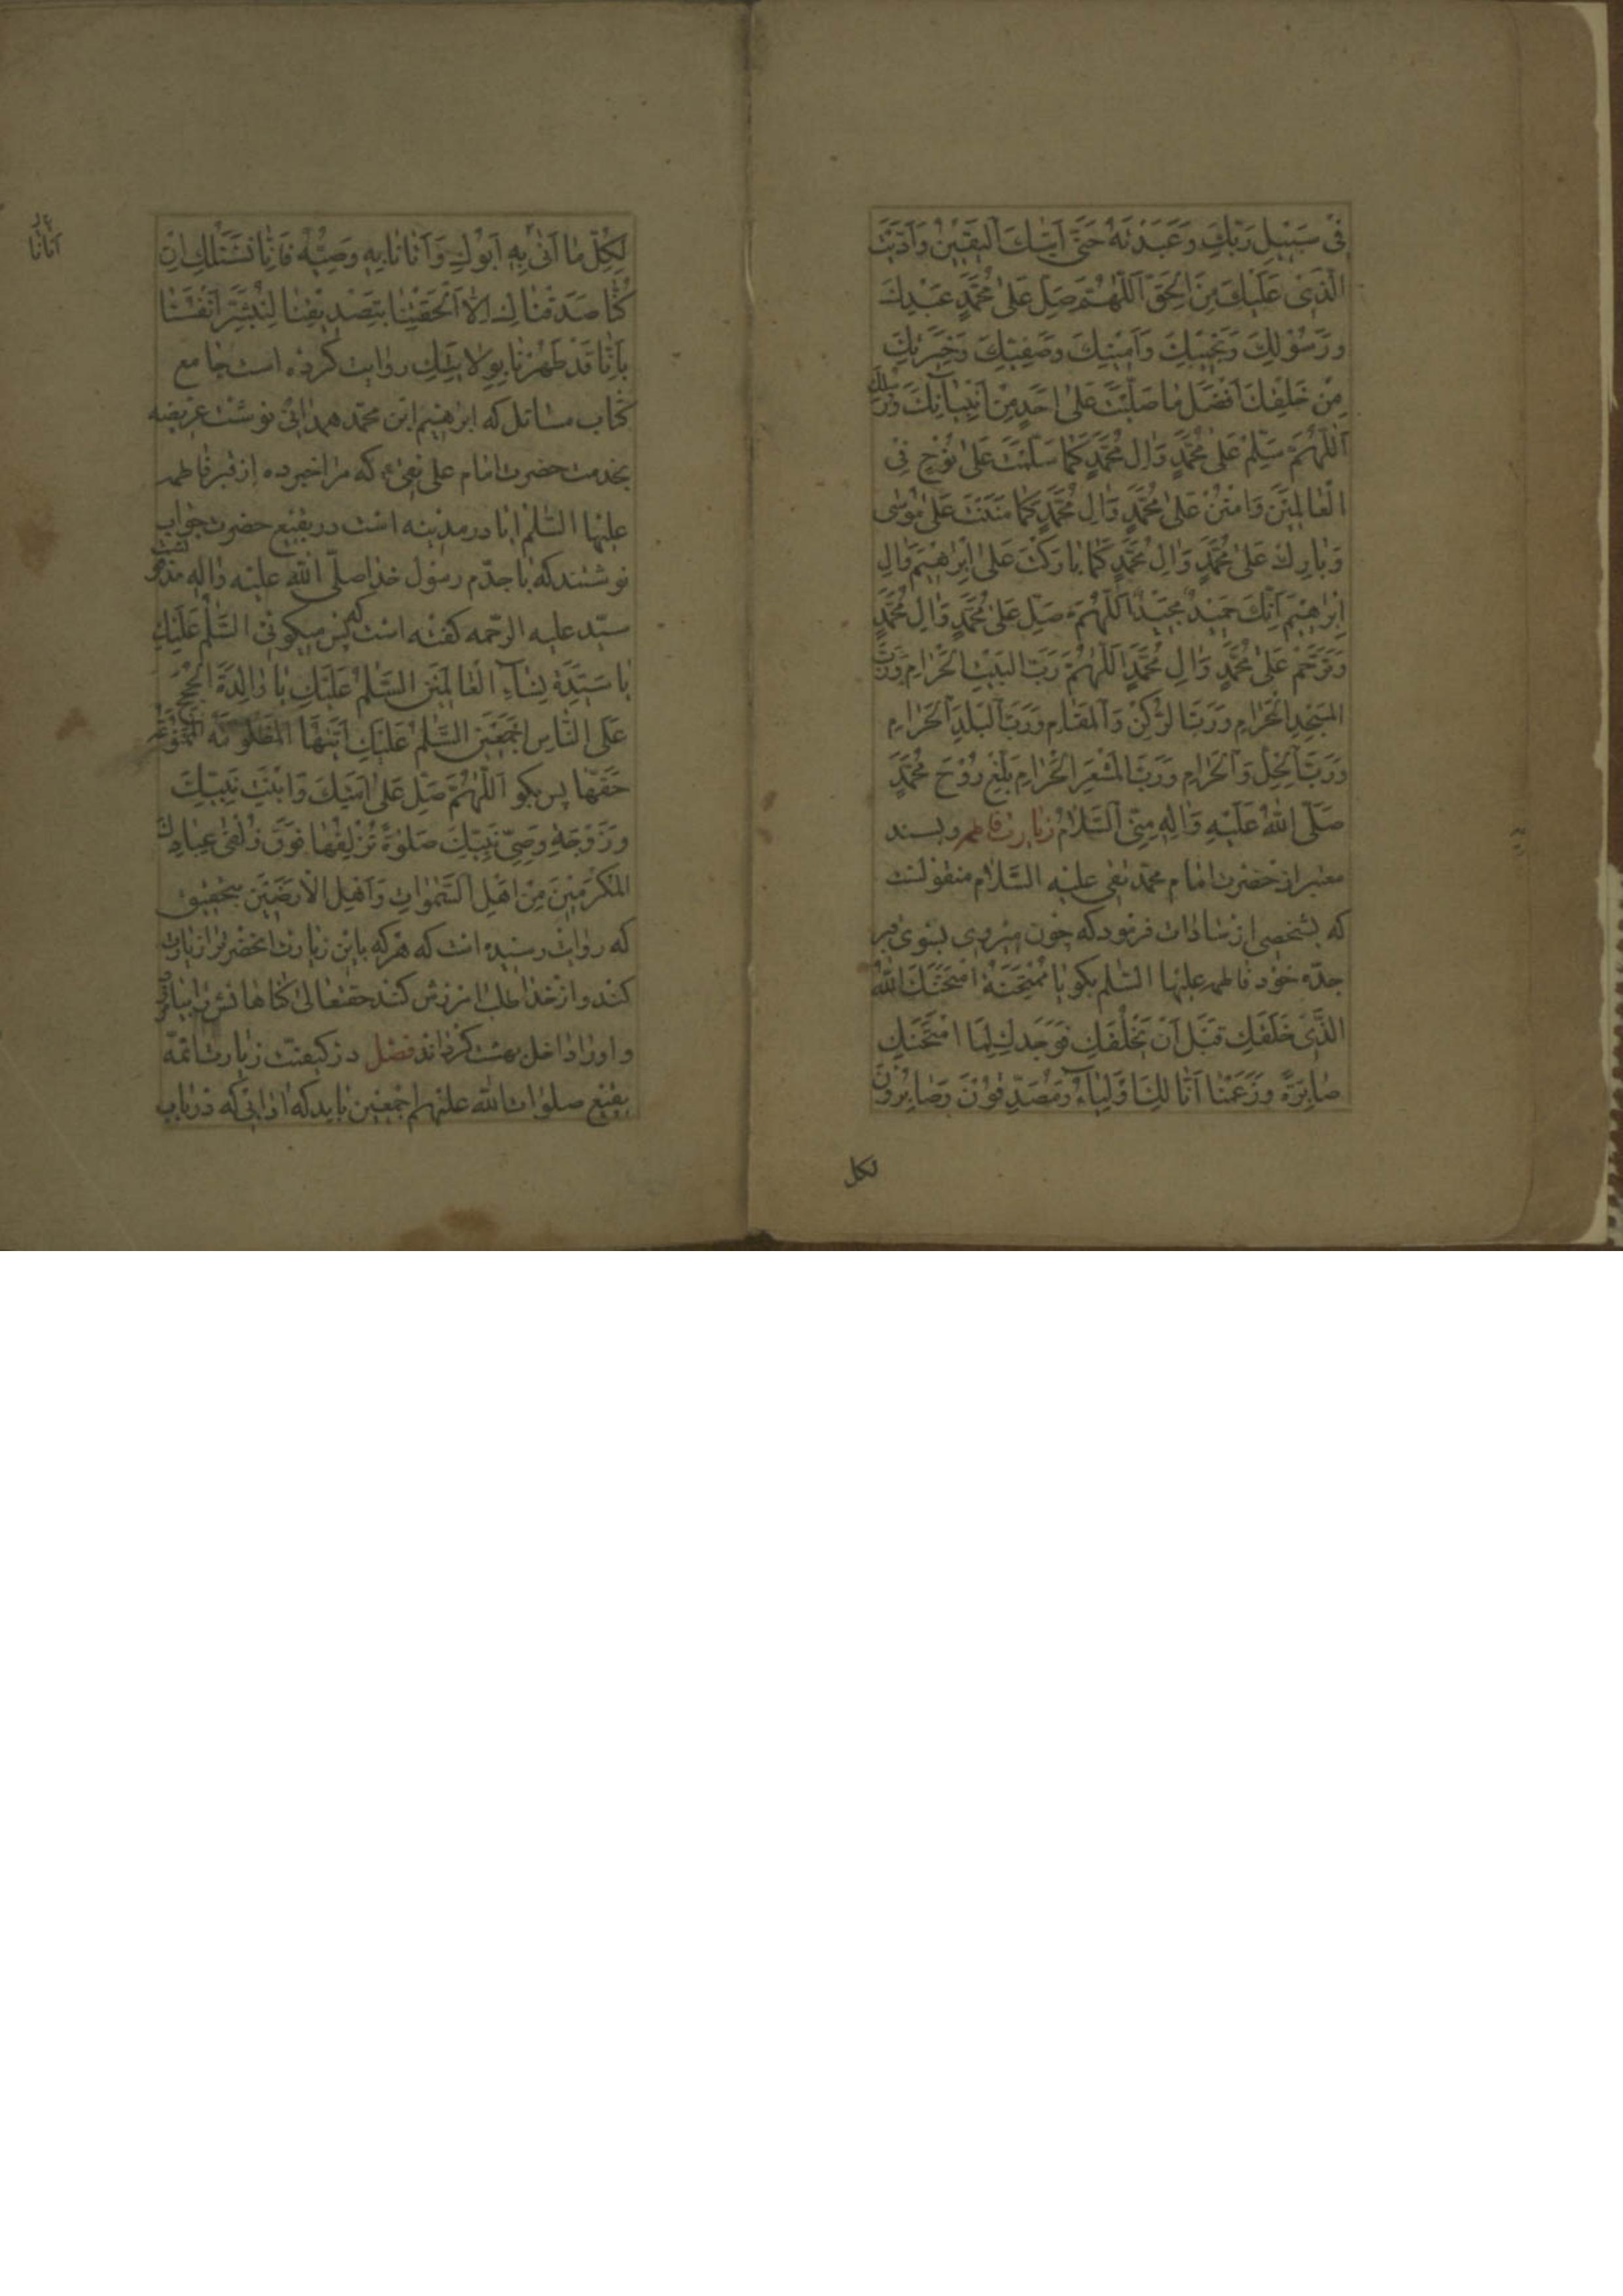 فِی سَبِیلِ رَبِّكَ وَعَبَدْتَهُ حَتّٰی اَتٰیكَ الْیَقِیْنُ وَاَدَّیْتَ
الَّذِی عَلَیْكَ مِنَ الْحَقِّ اَللّٰهُمَّ صَلِّ عَلیٰ مُحَمَّدٍ عَبْدِكَ
وَرَسُوْلِكَ وَنَجِیْبِكَ وَاَمِیْنِكَ وَصَفِیِّكَ وَخِیَرَتِكَ
مِنْ خَلْقِكَ اَفْضَلَ مٰا صَلَّیْتَ عَلیٰ اَحَدٍ مِنْ اَنْبِیٰآئِكَ وَرُسُلِكَ
اَللّٰهُمَّ سَلِّمْ عَلیٰ مُحَمَّدٍ وَاٰلِ مُحَمَّدٍ كَمٰا سَلَّمْتَ عَلیٰ نُوْحٍ فِی
الْعٰالَمِیْنَ وَامْنُنْ عَلیٰ مُحَمَّدٍ وَاٰلِ مُحَمَّدٍ كَمٰا مَنَنْتَ عَلیٰ مُوْسٰی
وَبٰارِكْ عَلیٰ مُحَمَّدٍ وَاٰلِ مُحَمَّدٍ كَمٰا بٰارَكْتَ عَلیٰ اِبْرٰهِیْمَ وَاٰلِ
اِبْرٰهِیْمَ اِنَّكَ حَمِیْدٌ مَجِیْدٌ اَللّٰهُمَّ صَلِّ عَلیٰ مُحَمَّدٍ وَاٰلِ مُحَمَّدٍ
وَتَرَحَّمْ عَلیٰ مُحَمَّدٍ وَاٰلِ مُحَمَّدٍ اَللّٰهُمَّ رَبَّ الْبَیْتِ الْحَرٰامِ وَرَبَّ
الْمَسْجِدِ الْحَرٰامِ وَرَبَّ الرُّكْنِ وَالْمَقٰامِ وَرَبَّ الْبَلَدِ الْحَرٰامِ
وَرَبَّ الْحِلِّ وَالْحَرٰامِ وَرَبَّ الْمَشْعَرِ الْحَرٰامِ بَلِّغْ رُوْحَ مُحَمَّدٍ
صَلَّی اللّٰهُ عَلَیْهِ وَاٰلِهِ مِنِّی السَّلٰامُ زیارت فاطمه و بسند
معتبر از حضرت امام محمد تقی علیه السّلام منقولست
كه بشخصی از سادات فرمود كه چون میروی بسوی قبر
جدّه خود فاطمه علیها السّلم بكو یٰا مُمْتَحَنَةُ امْتَحَنَكِ اللّٰهُ
الَّذِی خَلَقَكِ قَبْلَ اَنْ یَخْلُقَكِ فَوَجَدَكِ لِمَا امْتَحَنَكِ
صٰابِرَةً وَزَعَمْنٰا اَنّٰا لَكِ اَوْلِیٰاءُ وَمُصَدِّقُوْنَ وَصٰابِرُوْنَ
لكل
لِكُلِّ مٰا اَتیٰ بِهِ اَبُوْكِ وَاَتٰانٰا بِهِ وَصِیُّهُ فَاِنّٰا نَسْئَلُكِ اِنْ
كُنّٰا صَدَقْنٰاكِ اِلّٰا اَلْحَقْتِنٰا بِتَصْدِیْقِنٰا لِنُبَشِّرَ اَنْفُسَنٰا
بِاَنّٰا قَدْ طَهُرْنٰا بِوِلٰایَتِكِ روایت كرده است جامع
كتاب مسائل كه ابرهیم ابن محمّد همدانی نوشت عریضه
بخدمت حضرت امام علی نقی ع كه مرا خبر ده از قبر فاطمه
علیها السّلم ایا در مدینه است در بقیع حضرت جواب
نوشتند كه با جدّم رسول خدا صلّی اللّه علیه واله
سیّد علیه الرّحمه كفته است كه پس میكوئی السَّلٰمُ عَلَیْكِ
یٰا سَیِّدَةَ نِسٰآءِ الْعٰالَمِیْنَ السَّلٰمُ عَلَیْكِ یٰا وٰالِدَةَ الْحُجَجِ
عَلَی النّٰاسِ اَجْمَعِیْنَ السَّلٰمُ عَلَیْكِ اَیَّتُهَا الْمَظْلُوْمَةُ الْمَمْنُوْعَةُ
حَقَّهٰا پس بكو اَللّٰهُمَّ صَلِّ عَلیٰ اَمَتِكَ وَابْنَتِ نَبِیِّكَ
وَزَوْجَةِ وَصِیِّ نَبِیِّكَ صَلوٰةً تُزْلِفُهٰا فَوْقَ زُلْفیٰ عِبٰادِكَ
الْمُكَرَّمِیْنَ مِنْ اَهْلِ السَّمٰوٰاتِ وَاَهْلِ الْاَرَضِیْنَ بتحقیق
كه روایت رسیده است كه هركه باین زیارت انحضرترا زیارت
كند و از خدا طلب امرزش كند حقتعالی كناهانشرا بیامرزد
و اورا داخل بهشت كرداند فصل در كیفیت زیارت ائمّه
بقیع صلوات اللّه علیهم اجمعین باید كه ادابی كه در باب
اَتٰانٰا